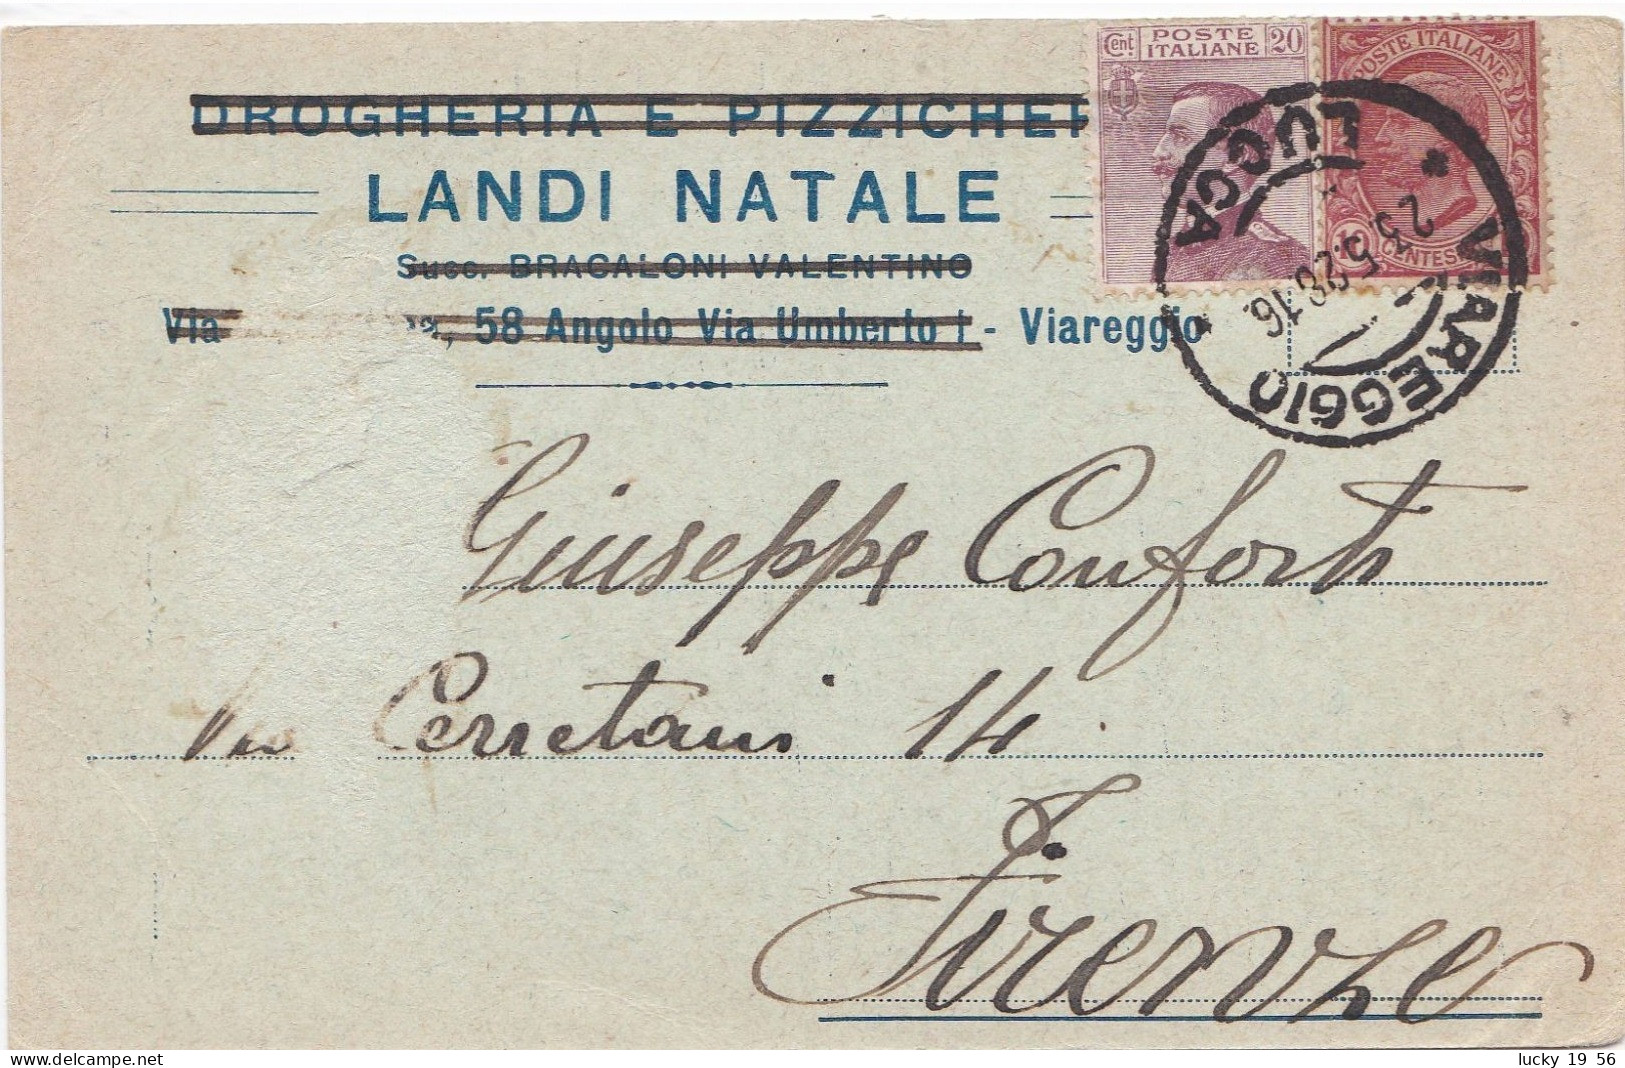 DROGHERIA E PIZZICHE
LANDI NATALE
Succ. BRACALONI VALENTINO
Via 58 Angolo Via Umberto I - Viareggio
Cent. POSTE ITALIANE 20
POSTE ITALIANE
10 CENTESIMI
VIAREGGIO
* LUCCA
23.5.28.16
Giuseppe Conforti
Via Cerretani 14.
Firenze
lucky 19 56